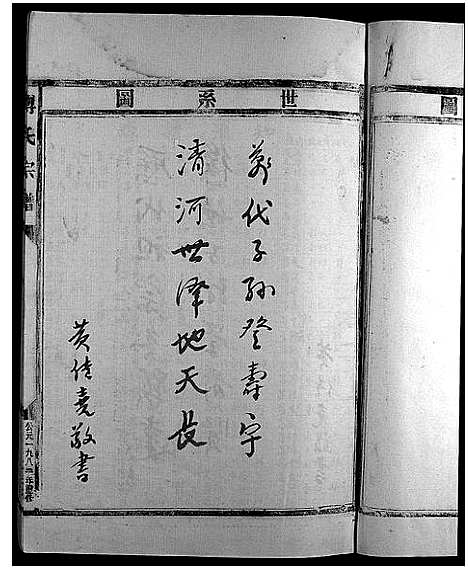 世系圖
萬代子孫登壽宇
清河世澤地天長
黃佳堯敬書
氏宗譜
公元一九八
圖